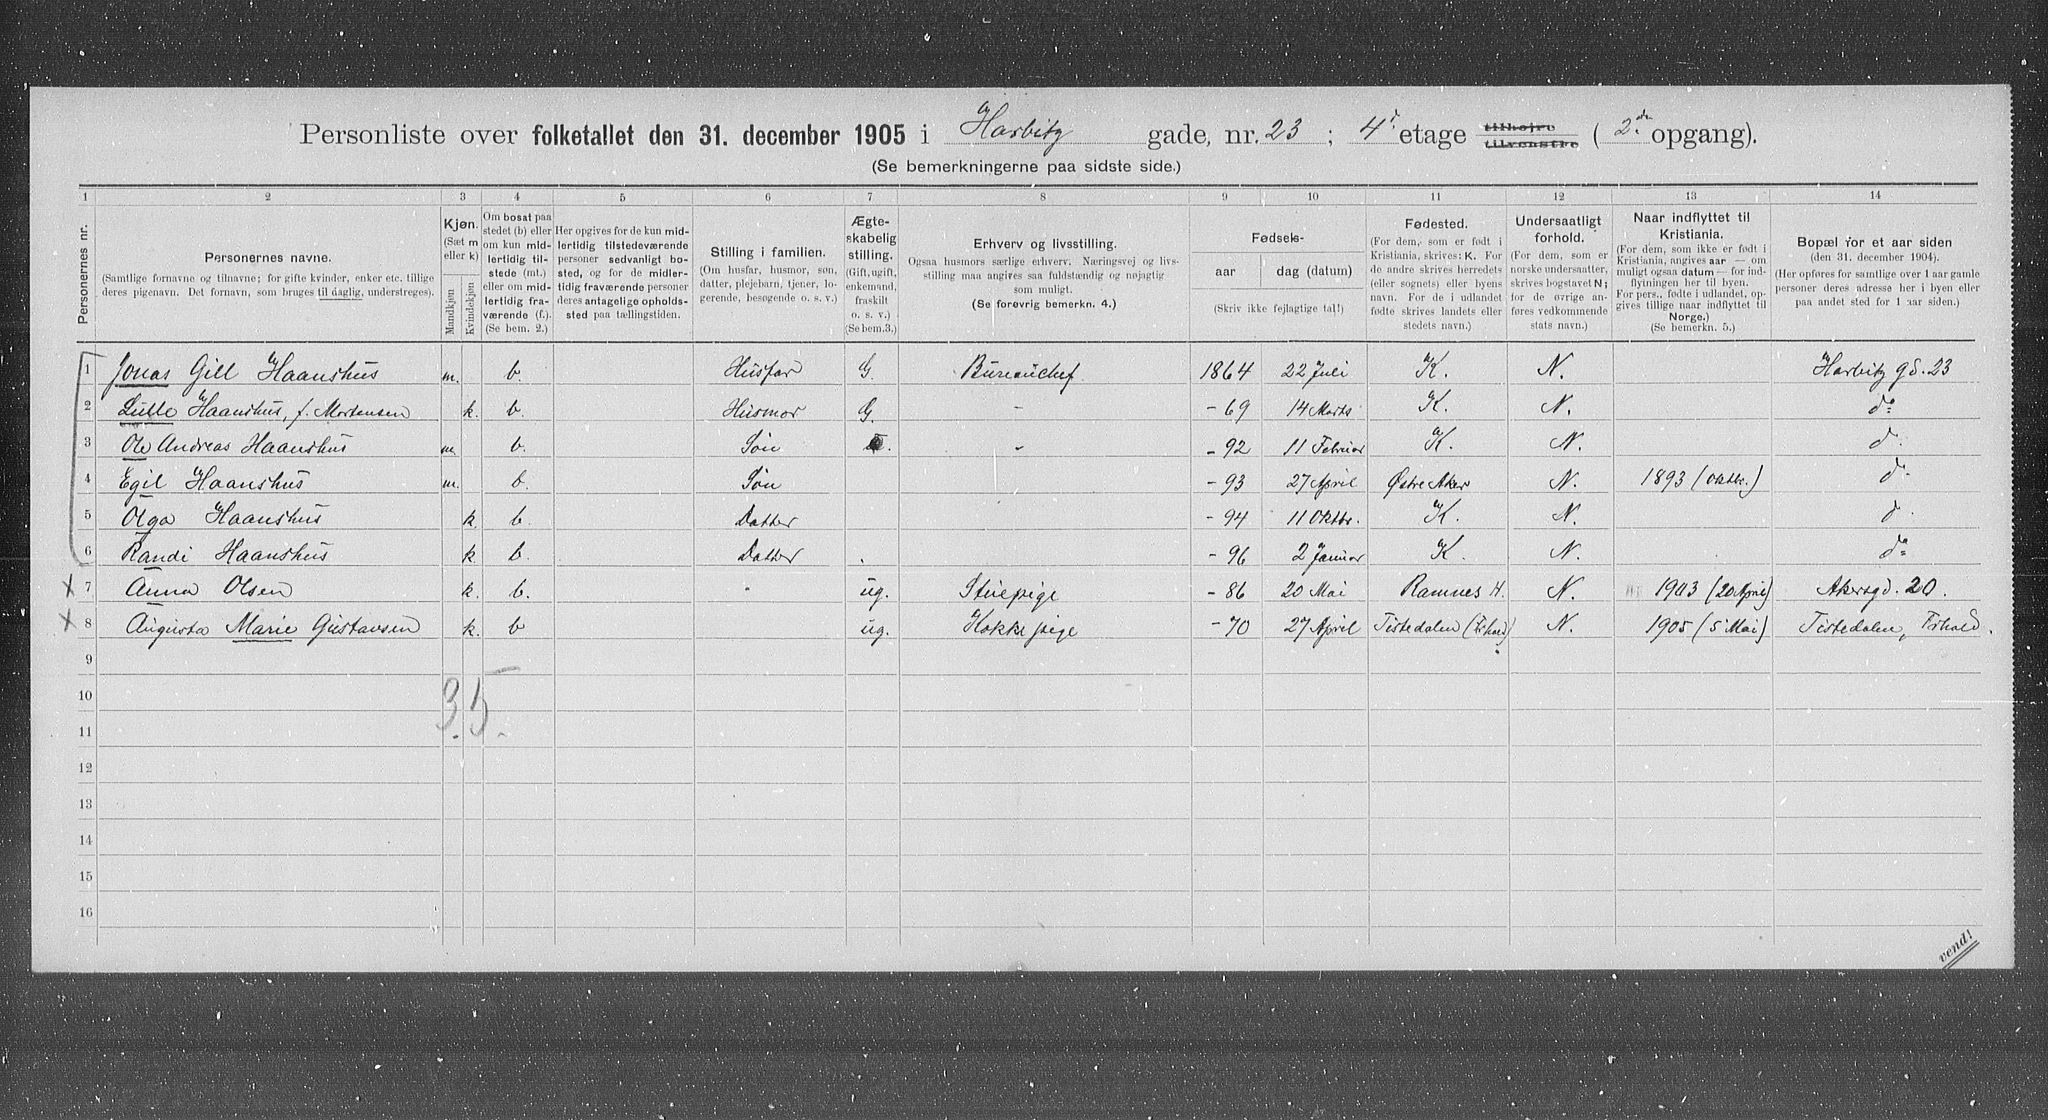 Personliste over folketallet den 31. december 1905 i Harbitz gade, nr. 23 ; 4' etage tilhøjre tilvenstre ( 2.den opgang).
(Se bemerkningerne paa sidste side.)
1 2 3 4 5 6 7 8 9 10 11 12 13 14
Personernes nr.
Personernes navne.
(Samtlige fornavne og tilnavne; for gifte kvinder, enker etc. tillige deres pigenavn. Det fornavn, som bruges til daglig, understreges).
Kjøn. (Sæt m eller k) Mandkjøn Kvindekjøn
Om bosat paa stedet (b) eller om kun midlertidig tilstede (mt.) eller om midlertidig fraværende (f.). (Se bem. 2.)
Her opgives for de kun midlertidig tilstedeværende personer sedvanligt bosted, og for de midlertidig fraværende personer deres antagelige opholdssted paa tællingstiden.
Stilling i familien. (Om husfar, husmor, søn, datter, plejebarn, tjener, logerende, besøgende o. s. v.)
Ægteskabelig stilling. (Gift, ugift, enkemand, fraskilt o. s. v.) (Se bem. 3.)
Erhverv og livsstilling. Ogsaa husmors særlige erhverv. Næringsvej og livsstilling maa angives saa fuldstændig og nøjagtig som muligt. (Se forøvrig bemerkn. 4.)
Fødsels- aar dag (datum) (Skriv ikke fejlagtige tal!)
Fødested. (For dem, som er født i Kristiania, skrives: K. For de andre skrives herredets (eller sognets) eller byens navn. For de i udlandet fødte skrives landets eller stedets navn.)
Undersaatligt forhold. (For dem, som er norske undersaatter, skrives bogstavet N; for de øvrige anføres vedkommende stats navn.)
Naar indflyttet til Kristiania. (For dem, som ikke er født i Kristiania, angives aar — om muligt ogsaa datum — for indflytningen her til byen. For pers., fødte i udlandet, opgives tillige naar indflyttet til Norge.) (Se bemerkn. 5.)
Bopæl for et aar siden (den 31. december 1904). (Her opføres for samtlige over 1 aar gamle personer deres adresse her i byen eller paa andet sted for 1 aar siden.)
1 Jonas Gill Haanshus m. b. Husfar G. Bureauchef 1864 22 Juli K. N. Harbitz gd. 23
2 Lulle Haanshus, f. Mortensen k. b. Husmor G. - - 69 14 Marts K. N. do
3 Ole Andreas Haanshus m b. Søn - - 92 11 Februar K. N. do
4 Egil Haanshus m. b. Søn - 93 27 April Østre Aker N. 1893 (Oktbr.) do
5 Olga Haanshus k. b. Datter - 94 11 Oktbr. K. N. do
6 Randi Haanshus k b. Datter - 96 2 Januar K. N. do
x 7 Anna Olsen k. b. ug. Stuepige - 86 20 Mai Ramnes H. N. 1903 (20 April) Akersgd. 20.
x 8 Augusta Marie Gustavsen k. b ug. Kokkepige - 70 27 April Tistedalen (Frhald) N. 1905 (5 Mai) Tistedalen, Frhald.
9
10
3. 5.
11
12
13
14
15
16
vend!